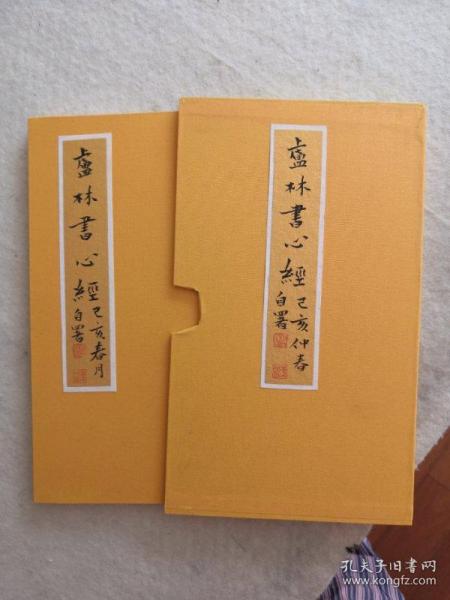 盧林書心經
己亥春月
自署
盧林書心經
己亥仲春
自署
孔夫子旧书网
www.kongfz.com